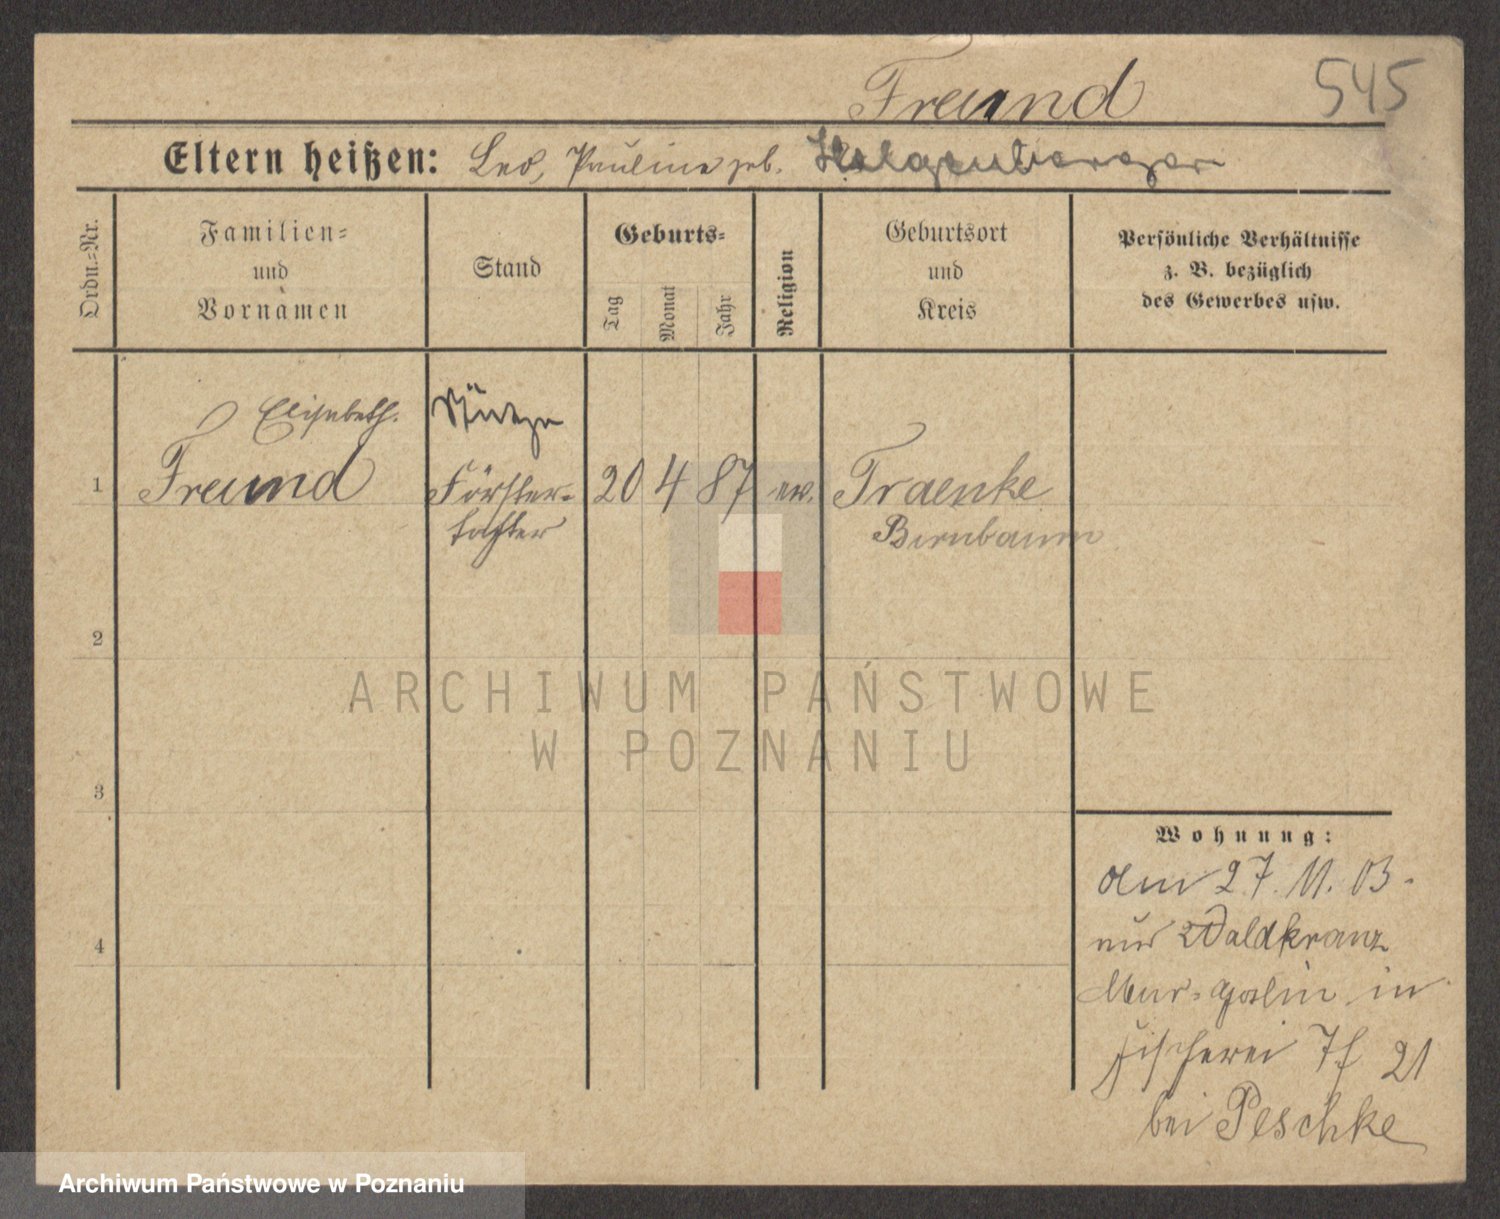 Freund 545
Eltern heißen: Leo, Pauline geb.
Ordn.-Nr.
Familien-
und
Vornamen
Stand
Geburts-
Tag
Monat
Jahr
Religion
Geburtsort
und
Kreis
Persönliche Verhältnisse
z. B. bezüglich
des Gewerbes usw.
Elisabeth. Stütze
1 Freund Förster- 20 4 87 ev. Traenke
tochter Birnbaum
2
ARCHIWUM PAŃSTWOWE
W POZNANIU
3
Wohnung:
am 27. 11. 03.
aus Waldkranz
Mur-Goslin in
Fischerei 7f 21
bei Peschke
4
Archiwum Państwowe w Poznaniu